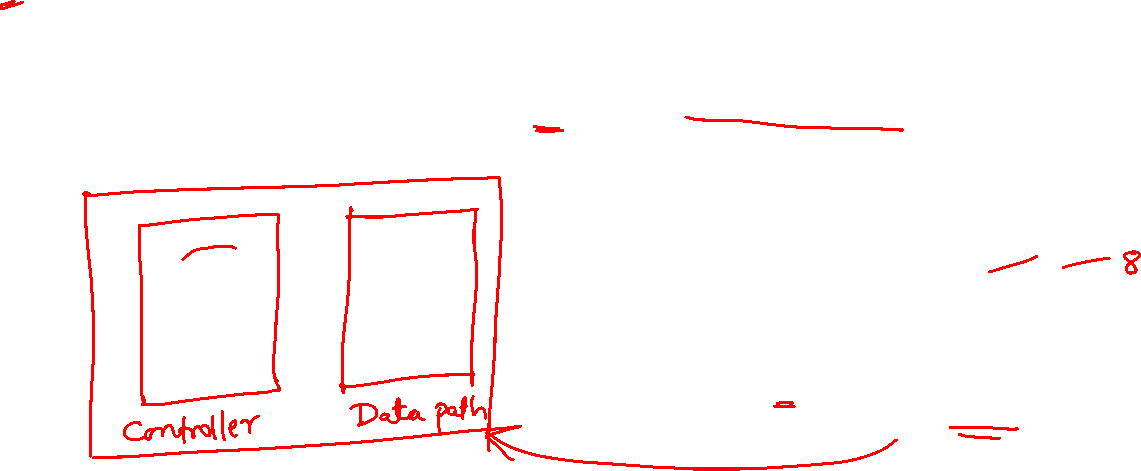 8
Controller Data path